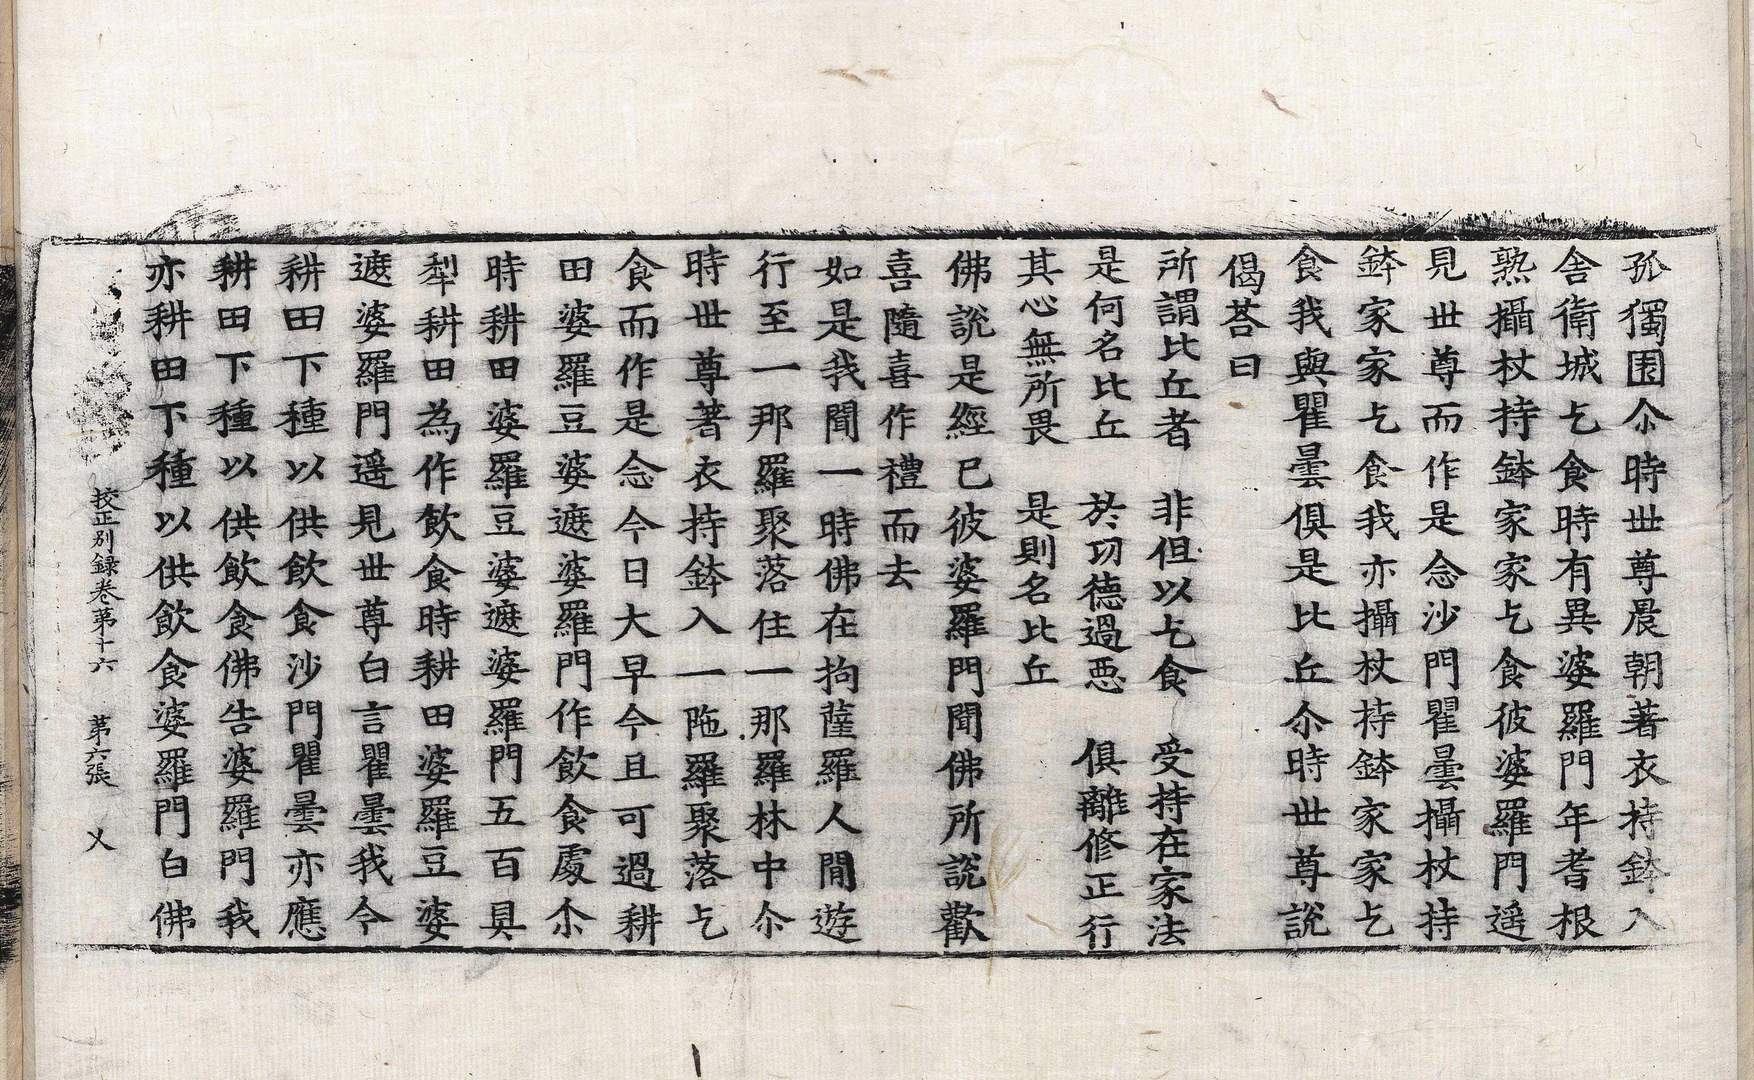 孤獨園尒時世尊晨朝著衣持鉢入
舍衛城乞食時有異婆羅門年耆根
熟攝杖持鉢家家乞食彼婆羅門遥
見世尊而作是念沙門瞿曇攝杖持
鉢家家乞食我亦攝杖持鉢家家乞
食我與瞿曇俱是比丘尒時世尊說
偈荅曰
所謂比丘者　非但以乞食　受持在家法
是何名比丘　於功德過惡　俱離修正行
其心無所畏　是則名比丘
佛說是經已彼婆羅門聞佛所說歡
喜隨喜作禮而去
如是我聞一時佛在拘薩羅人間遊
行至一那羅聚落住一那羅林中尒
時世尊著衣持鉢入一陁羅聚落乞
食而作是念今日大早今且可過耕
田婆羅豆婆遮婆羅門作飲食處尒
時耕田婆羅豆婆遮婆羅門五百具
犁耕田為作飲食時耕田婆羅豆婆
遮婆羅門遥見世尊白言瞿曇我今
耕田下種以供飲食沙門瞿曇亦應
耕田下種以供飲食佛告婆羅門我
亦耕田下種以供飲食婆羅門白佛
挍正別録卷第十六　第六張　㐅